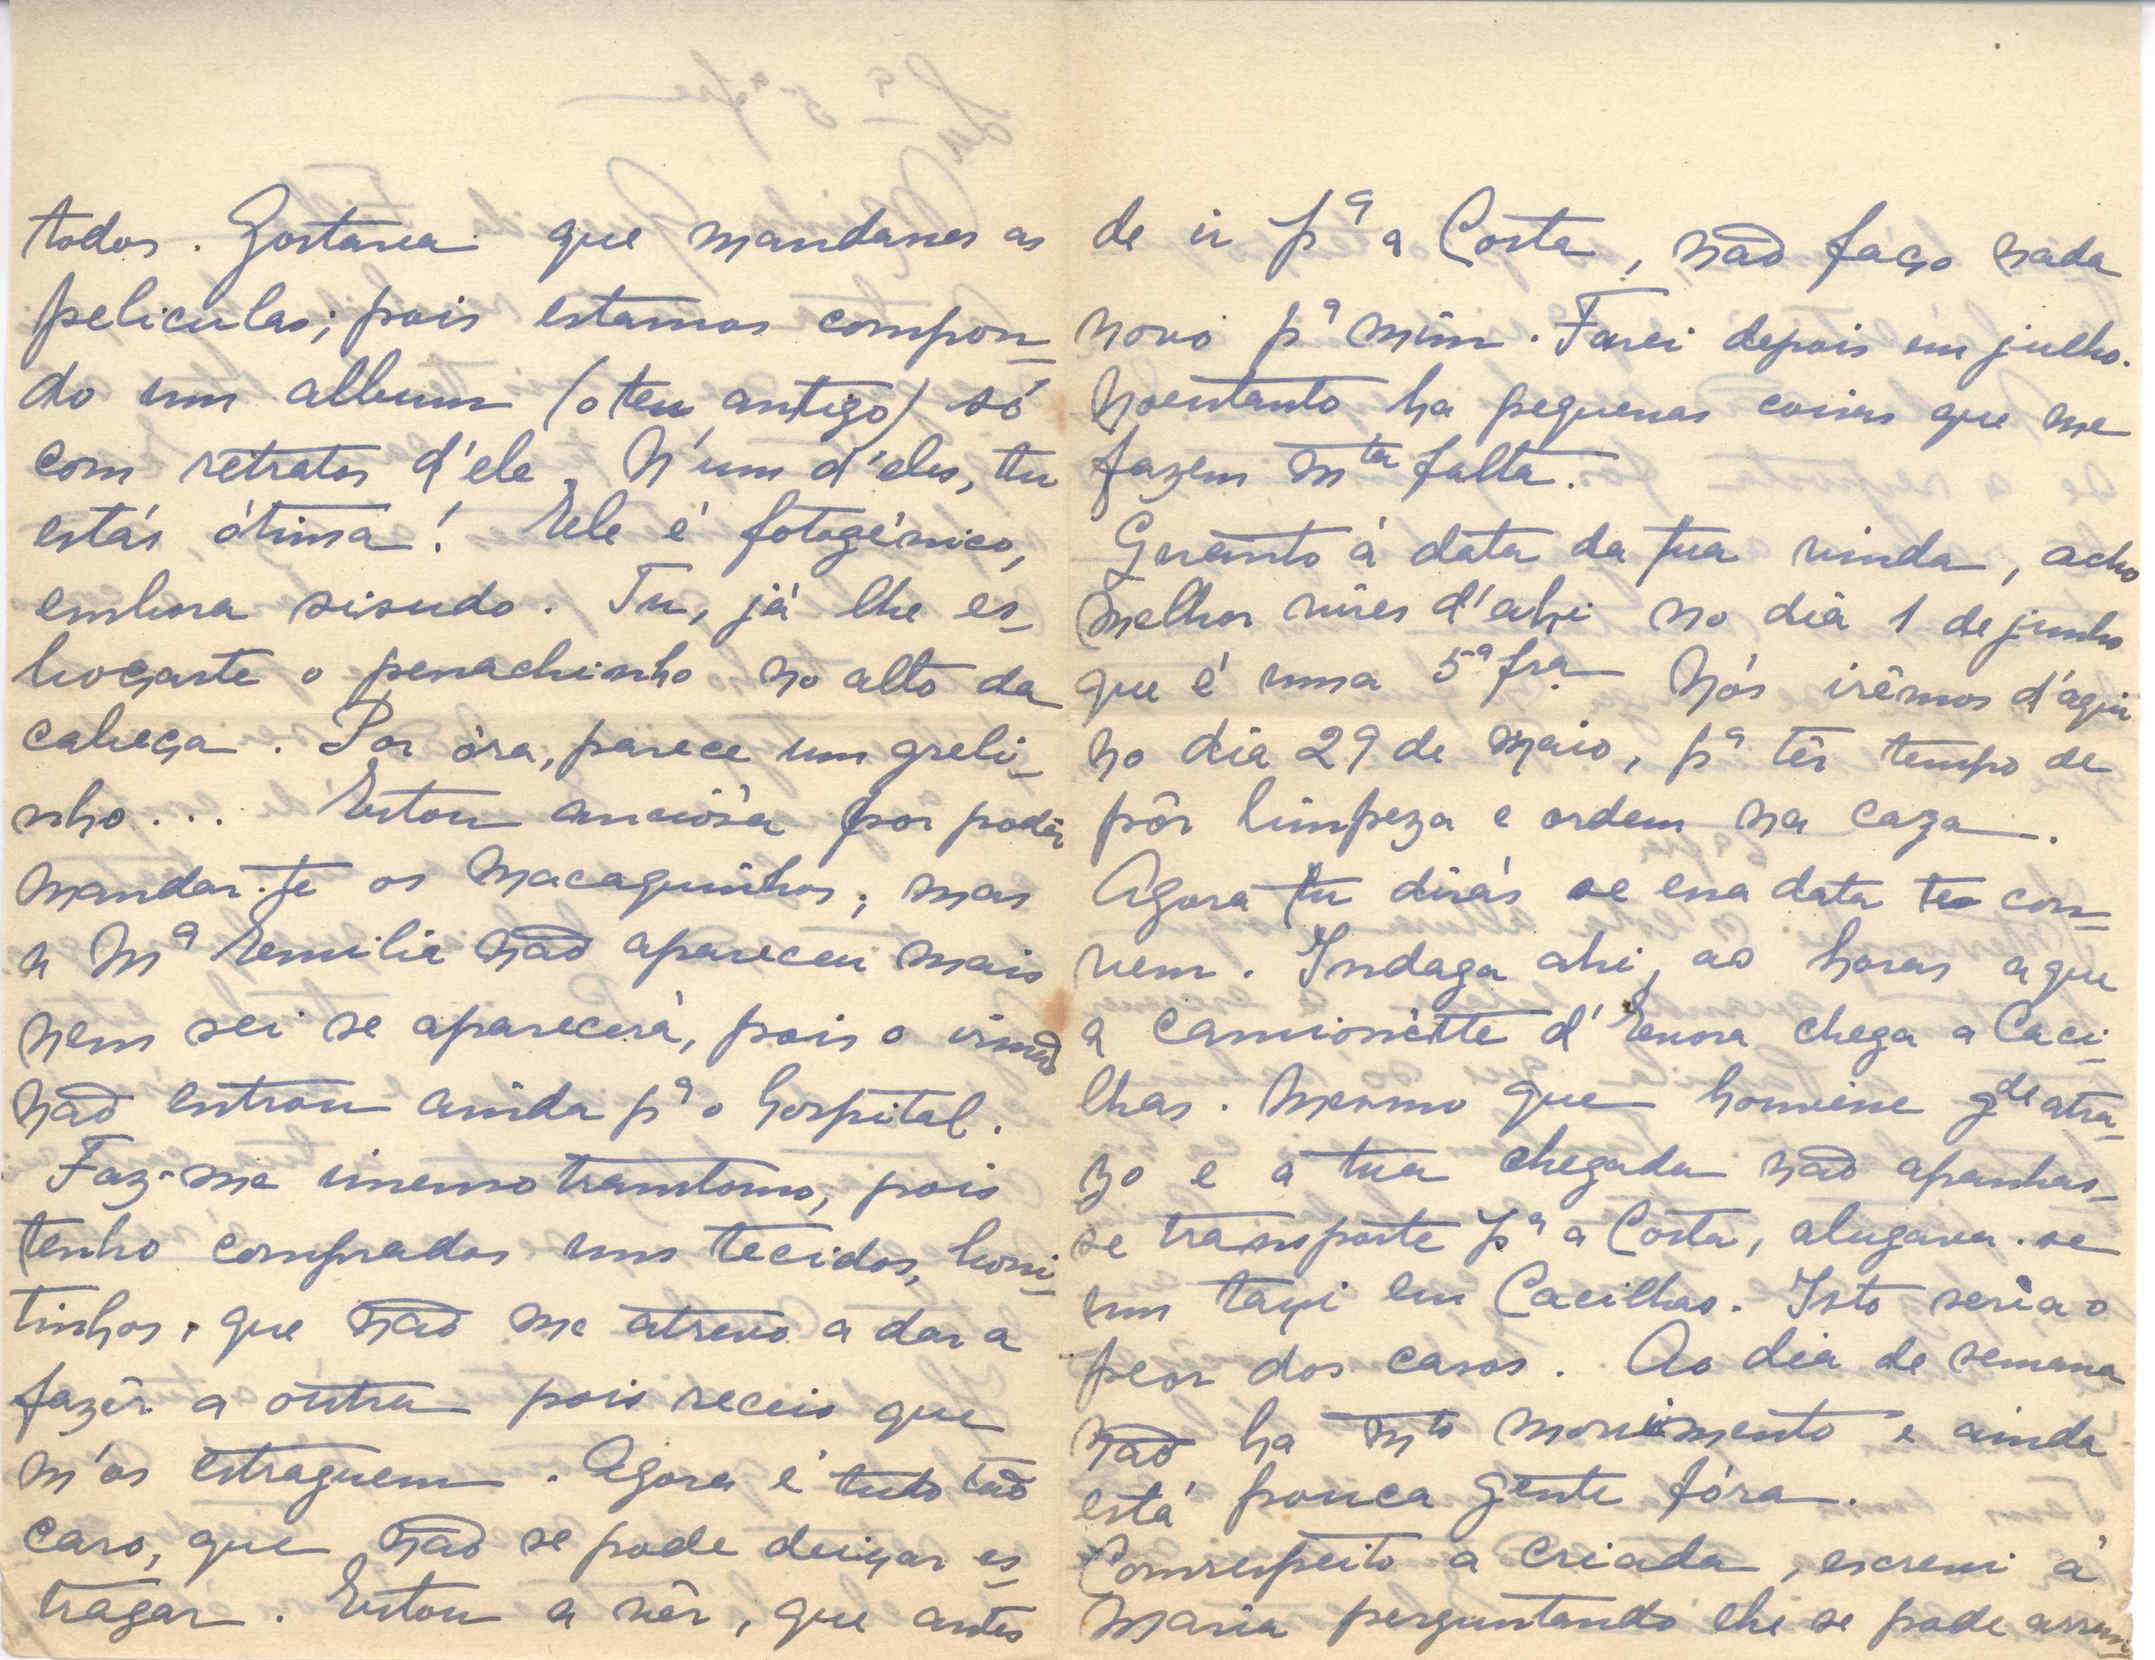 todos. Gostaria que mandasses as
peliculas; pois estamos compon-
do um album (o teu antigo) só
com retratos d'ele. N'um d'eles, tu
estás ótima! Ele é fotogénico,
embora sisudo. Tu, já lhe es-
boçaste o penachinho no alto da
cabeça. Por óra, parece um greli-
nho... Estou anciósa por podêr
mandar-te os macaquinhos; mas
a Mª Emilia não apareceu mais
nem sei se aparecerá, pois o irmão
não entrou ainda pª o hospital.
Faz-me imenso transtorno, pois
tenho comprados uns tecidos, boni-
tinhos, que não me atrevo a dar a
fazêr a outra pois receio que
m'os estraguem. Agora é tudo tão
caro, que não se pode deixar es-
tragar. Estou a vêr, que antes
de ir pª a Costa, não faço nada
novo pª mim. Farei depois em julho.
Noentanto ha pequenas coisas que me
fazem mta falta.
Quanto á data da tua vinda, acho
melhor vires d'ahi no dia 1 de junho
que é uma 5ª frª. Nós irêmos d'aqui
no dia 29 de maio, pª têr tempo de
pôr limpeza e ordem na caza.
Agora tu dirás se essa data te con-
vem. Indaga ahi, as horas a que
a camionètte d'Evora chega a Caci-
lhas. Mesmo que houvesse gde atra-
zo e a tua chegada não apanhas-
se transporte pª a Costa, alugava-se
um taxi em Cacilhas. Isto seria o
peor dos casos. Ao dia de semana
não ha mto movimento e ainda
está pouca gente fóra.
Comrespeito a criada, escrevi á
Maria perguntando lhe se pode arran-